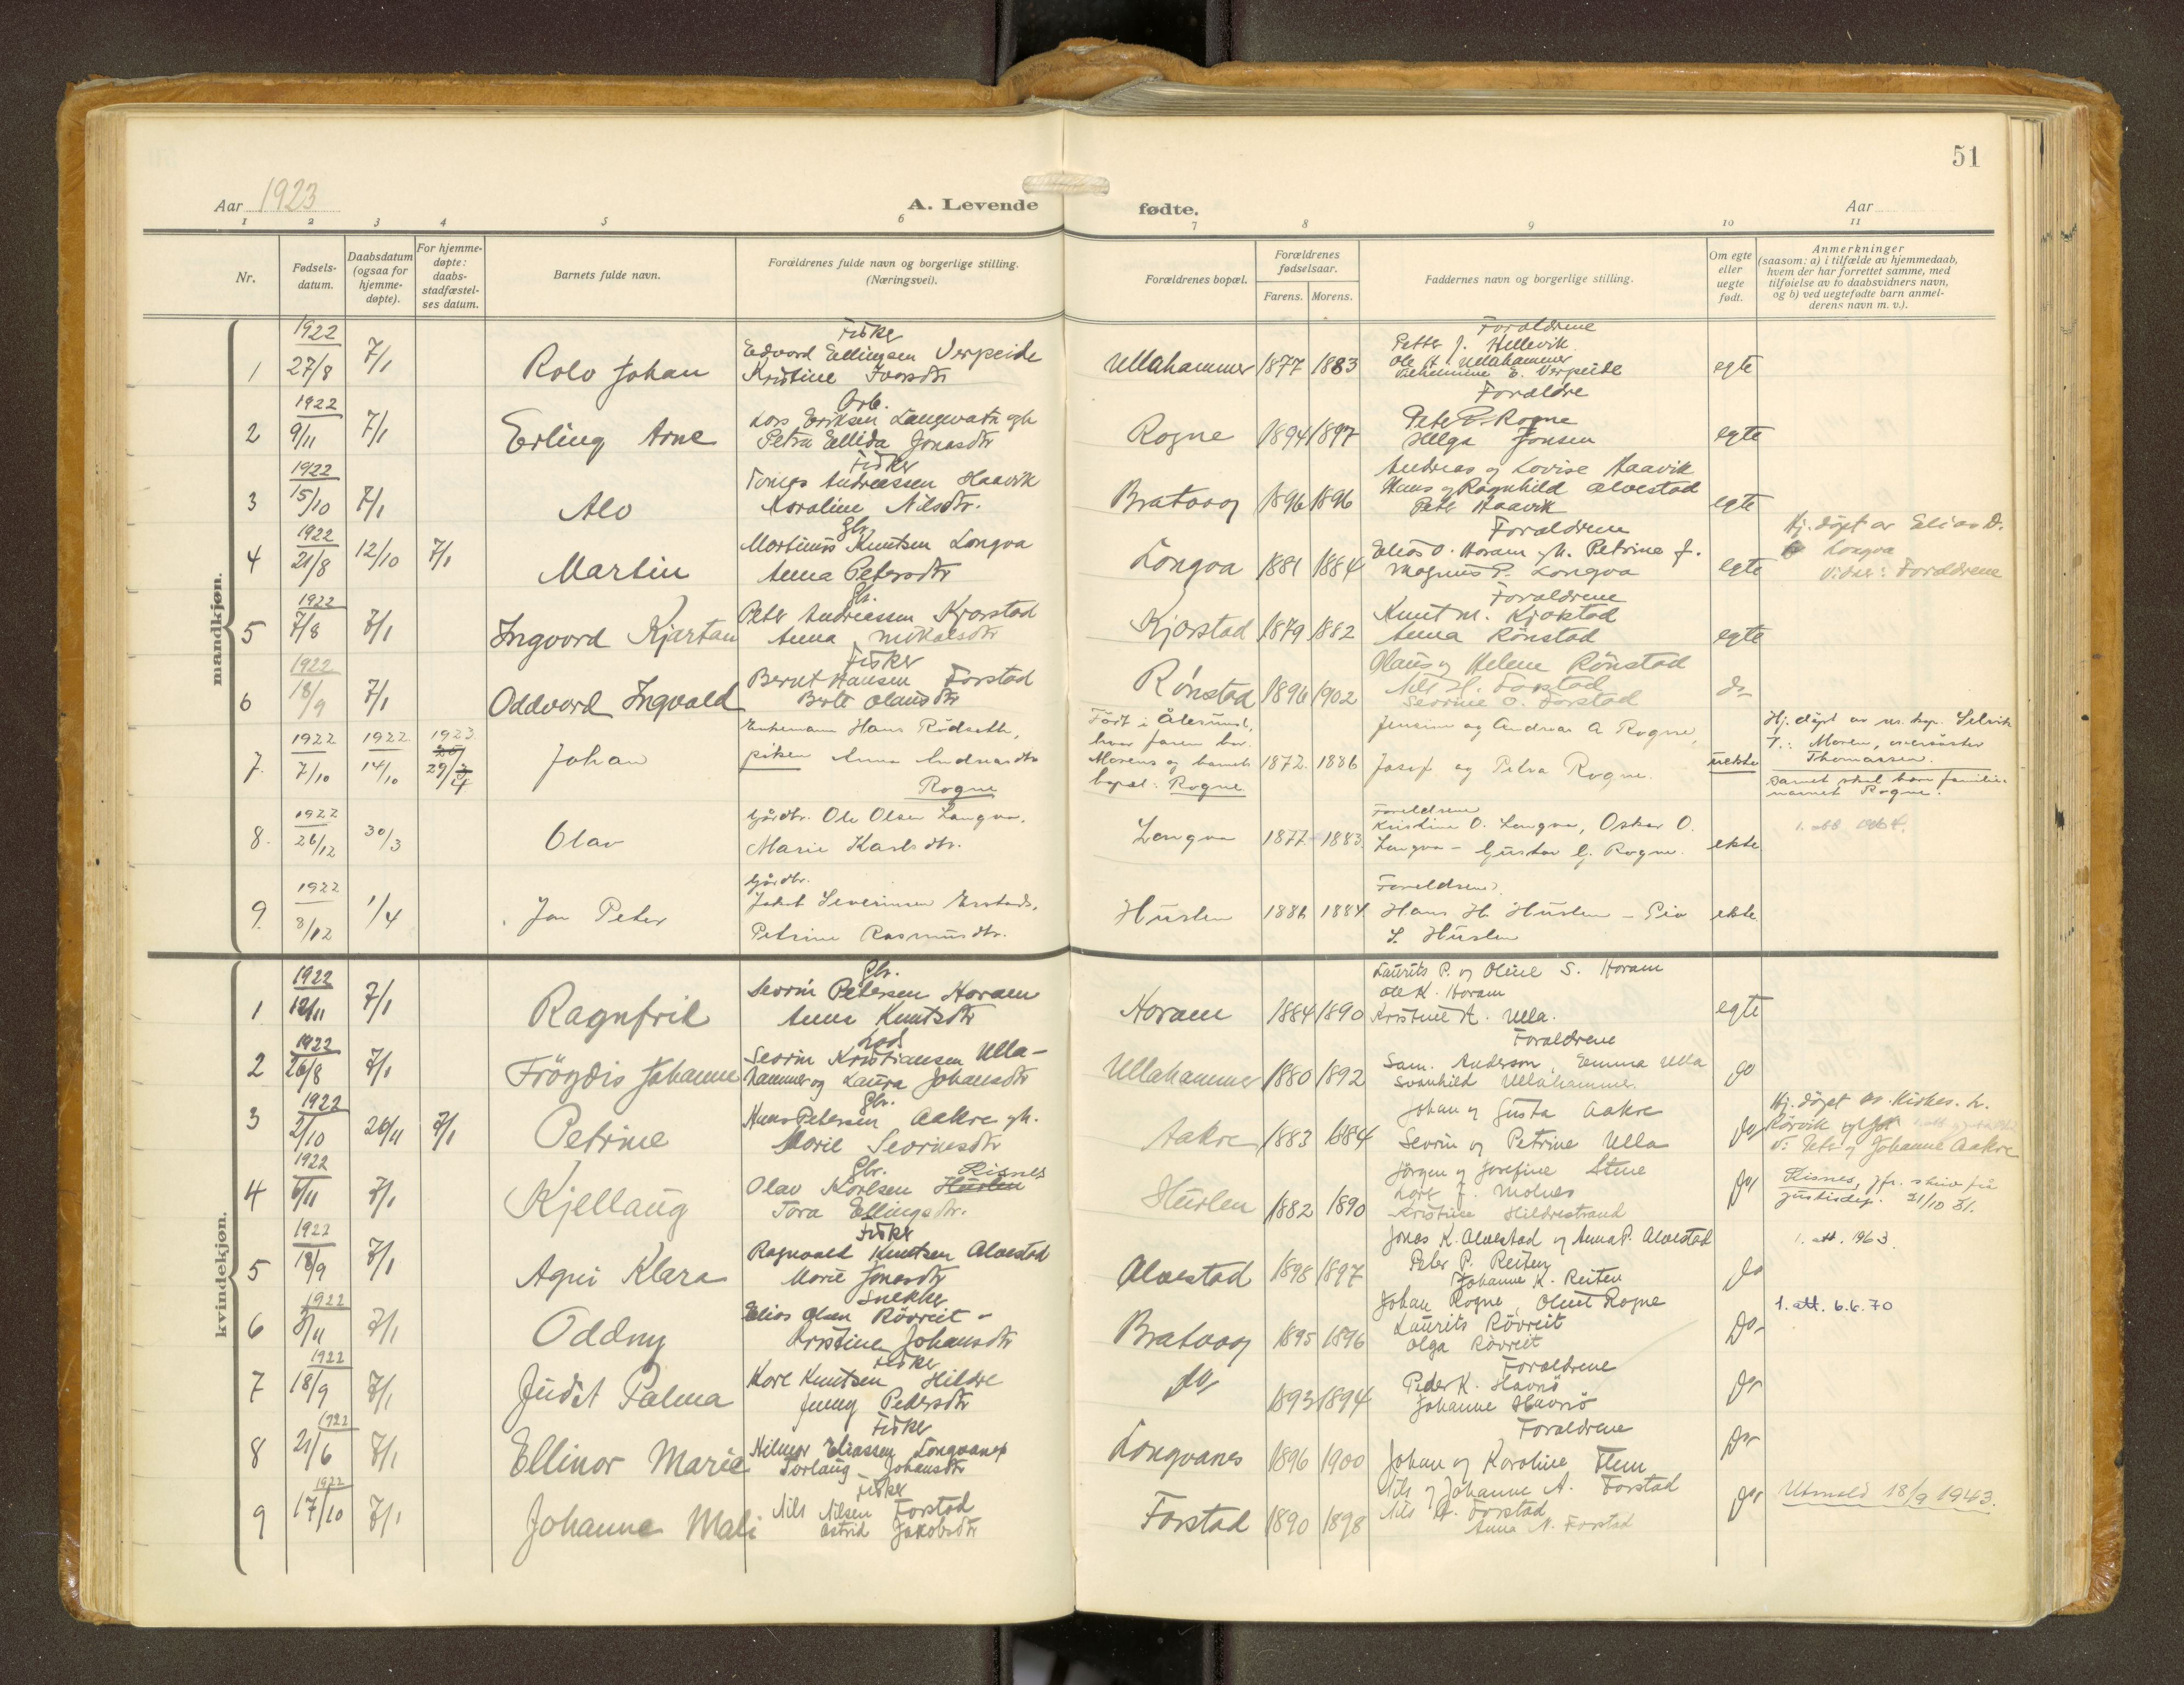 51
Aar 1923
A. Levende
fødte.
Aar
1 2 3 4 5 6 7 8 9 10 11
Nr.
Fødsels-
datum.
Daabsdatum
(ogsaa for
hjemme-
døpte).
For hjemme-
døpte:
daabs-
stadfæstel-
ses datum.
Barnets fulde navn.
Forældrenes fulde navn og borgerlige stilling.
(Næringsvei).
Forældrenes bopæl.
Forældrenes
fødselsaar.
Farens. Morens.
Faddernes navn og borgerlige stilling.
Om egte
eller
uegte
født.
Anmerkninger
(saasom: a) i tilfælde av hjemmedaab,
hvem der har forrettet samme, med
tilføielse av to daabsvidners navn,
og b) ved uegtefødte barn anmel-
derens navn m. v.).
mandkjøn.
1
1922
27/8
7/1
Rolv Johan
Fisker
Edvard Ellingsen Verpeide
Kristine Ivarsdtr
Ullahammer
1877
1883
Forældrene
Petter J. Hellevik
Ole K. Ullahammer
Vilhelmine E. Verpeide
egte
2
1922
9/11
7/1
Erling Arne
Arb.
Lars Eriksen Langevatn gh
Petra Ellida Jonasdtr
Rogne
1894
1897
Forældre
Pete P. Rogne
Helga Jonsen
egte
3
1922
15/10
7/1
Alv
Fisker
Tomas Andreassen Haavik
Karoline Nilsdtr.
Bratvaag
1896
1896
Andreas og Lovise Haavik
Hans og Ragnhild Alvestad
Peter Haavik
egte
4
1922
21/8
12/10
7/1
Martin
Gbr.
Martinus Knutsen Longva
Anna Petersdtr
Longva
1881
1884
Forældrene
Elias O. Haram gh. Petrine J.
Magnus P. Longva
egte
Hj. døpt av Elias O.
Longva
Vidner: Forældrene
5
1922
7/8
7/1
Ingvard Kjartan
Gbr.
Peter Andreassen Kjærstad
Anna Mikalsdtr
Kjærstad
1879
1882
Forældrene
Knut M. Kjærstad
Anna Rönstad
egte
6
1922
18/9
7/1
Oddvard Ingvald
Fisker
Bernt Hansen Farstad
Berte Olausdtr
Rönstad
1896
1902
Olaus og Helene Rönstad
Nils H. Farstad
Severine O. Farstad
do
7.
1922
7/10
1922
14/10
1923
29/4
Johan
Enkemann Hans Rödseth,
piken Anna Andreasdtr
Rogne
Født i Ålesund,
hvor faren bor.
Morens og barnets
bopæl: Rogne
1872.
1886
Jensine og Andreas A Rogne,
Josef og Petra Rogne.
uekte
Hj. døpt av res. kap. Selvik
V.: Moren, oversöster
Thomassen.
Barnet skal bære familie-
navnet Rogne.
8.
1922
26/12
30/3
Olav
Gårdbr. Ole Olsen Longva.
Marie Karlsdtr.
Longva
1877
1883.
Foreldrene
Kristine O. Longva, Oskar O.
Longva - Gustav G. Rogne.
ekte
1. att 1964.
9.
1922
8/12
1/4
Jan Peter
Gårdbr.
Jakob Severinsen Ersstads.
Petrine Rasmusdtr.
Hurlen
1886
1884
Foreldrene.
Hans H. Hurlen - Piv
S. Hurlen
ekte
kvindekjøn.
1
1922
12/11
7/1
Ragnfrid
Gbr.
Sevrin Petersen Haram
Anna Knutsdtr
Haram
1884
1890
Laurits P. og Oline S. Haram
Ole K. Haram
Kristine A. Ulla.
egte
2
1922
26/8
7/1
Frögdis Johanne
Lods
Sevrin Kristiansen Ulla-
hammer og Laura Johansdtr
Ullahammer
1880
1892
Forældrene
Sam. Anderson, Emma Ulla
Svanhild Ullahammer.
do
3
1922
2/10
26/11
7/1
Petrine
Gbr.
Hans Petersen Aakre gh.
Marie Sevrinsdtr
Aakre
1883
1884
Johan og Gusta Aakre
Sevrin og Petrine Ulla
do
Hj. døpt av Kirkes. L.
Rörvik
V: Peter og Johanne Aakre
4
1922
5/11
7/1
Kjellaug
Gbr. Risnes
Olav Karlsen Hurlen
Tora Ellingsdtr.
Hurlen
1882
1890
Jörgen og Josefine Stene
Lars J. Molnes
Kristine Hildrestrand
do
Risnes, jfr. skriv frå
justisdep. 21/10 31.
5
1922
18/9
7/1
Agni Klara
Fisker
Ragnvald Knutsen Alvestad
Marie Jonasdtr
Alvestad
1898
1897
Jonas K. Alvestad og Anna P. Alvestad
Peter P. Reiten
Johanne K. Reiten
do
1. att. 1963.
6
1922
3/11
7/1
Oddny
Snekker
Elias Olsen Rövreit -
Kristine Johansdtr
Brattvaag
1895
1896
Johan Rogne, Oline Rogne
Laurits Rövreit
Olga Rövreit
Do
1. att. 6.6.70
7
1922
18/9
7/1
Judit Palma
Fisker
Kare Knutsen Hildre
Jenny Pedersdtr
do
1893
1894
Forældrene
Peder K. Havnö
Johanne Havnö
do
8
1922
21/6
7/1
Ellinor Marie
Fisker
Hilmar Eliassen Longvanes
Torlaug Johansdtr
Longvanes
1896
1900
Forældrene
Johan og Karoline Flem
do
9
1922
17/10
7/1
Johanne Mali
Fisker
Nils Nilsen Farstad
Astrid Jakobsdtr
Farstad
1890
1898
Nils og Johanne A. Farstad
Nils A. Farstad
Anna N. Farstad
do
Utmeld 18/9 1943.